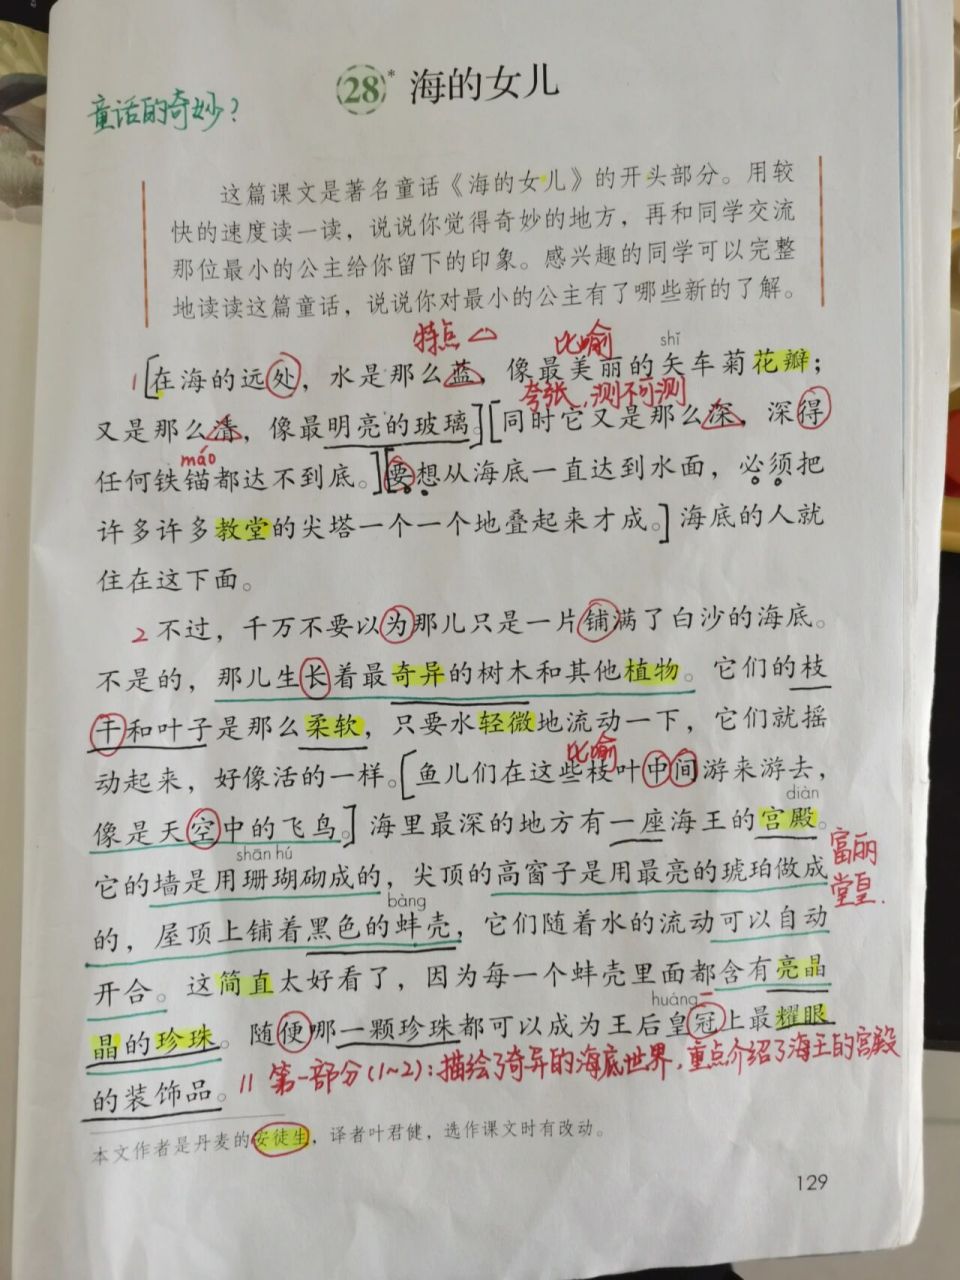 28* 海的女儿
童话的奇妙？
这篇课文是著名童话《海的女儿》的开头部分。用较
快的速度读一读，说说你觉得奇妙的地方，再和同学交流
那位最小的公主给你留下的印象。感兴趣的同学可以完整
地读读这篇童话，说说你对最小的公主有了哪些新的了解。
特点△ 比喻 shǐ
1[在海的远处，水是那么蓝，像最美丽的矢车菊花瓣；
夸张，测不可测
又是那么清，像最明亮的玻璃。][同时它又是那么深，深得
máo
任何铁锚都达不到底。][要想从海底一直达到水面，必须把
许多许多教堂的尖塔一个一个地叠起来才成。]海底的人就
住在这下面。
2不过，千万不要以为那儿只是一片铺满了白沙的海底。
不是的，那儿生长着最奇异的树木和其他植物。它们的枝
干和叶子是那么柔软，只要水轻微地流动一下，它们就摇
比喻
动起来，好像活的一样。[鱼儿们在这些枝叶中间游来游去，
diàn
像是天空中的飞鸟。]海里最深的地方有一座海王的宫殿。
富丽
堂皇.
shān hú
它的墙是用珊瑚砌成的，尖顶的高窗子是用最亮的琥珀做成
bàng
的，屋顶上铺着黑色的蚌壳，它们随着水的流动可以自动
开合。这简直太好看了，因为每一个蚌壳里面都含有亮晶
huáng
晶的珍珠。随便哪一颗珍珠都可以成为王后皇冠上最耀眼
的装饰品。// 第一部分(1~2):描绘了奇异的海底世界，重点介绍了海王的宫殿
本文作者是丹麦的安徒生，译者叶君健，选作课文时有改动。
129